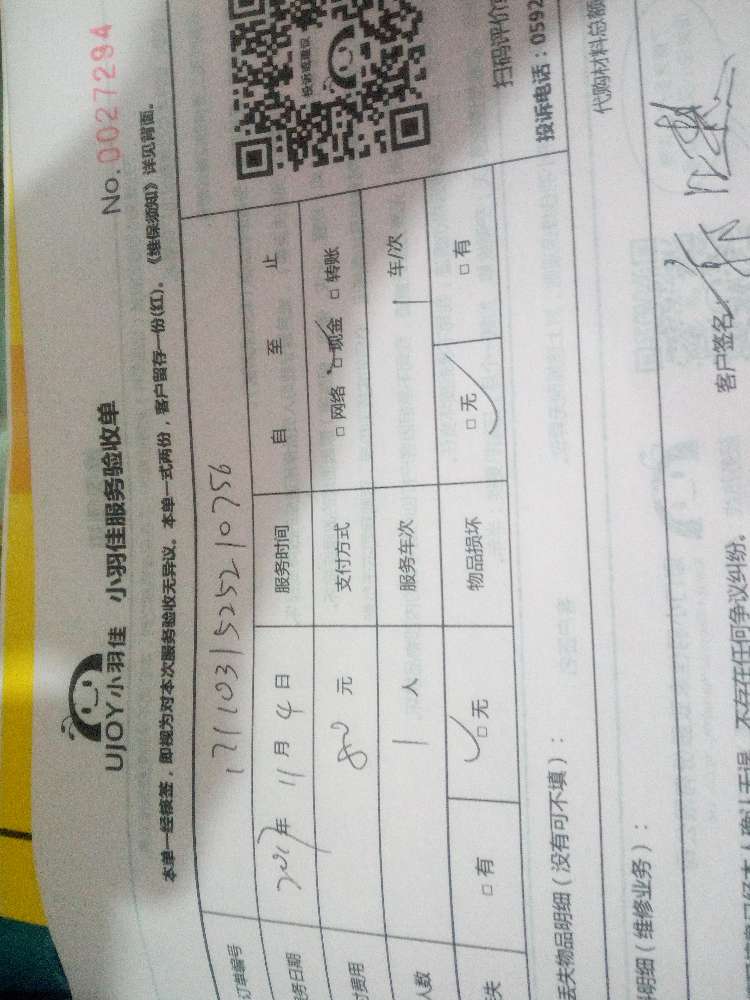 UJOY小羽佳 小羽佳服务验收单
No.0027294
本单一经核签，即视为对本次服务验收无异议。本单一式两份，客户留存一份(红)。《维保须知》详见背面。
订单编号 1711031525210756
务日期 2017年 11月 4日 服务时间 自 至 止
付费用 80 元 支付方式 □网络 □现金 □转账
人数 1 人 服务车次 1 车/次
失 □有 □无 物品损坏 □无 □有
投诉或建议
扫码评价
投诉电话：0592
丢失物品明细（没有可不填）：
代购材料总额
明细（维修业务）：
客户签名
本人确认无误，不存在任何争议纠纷。